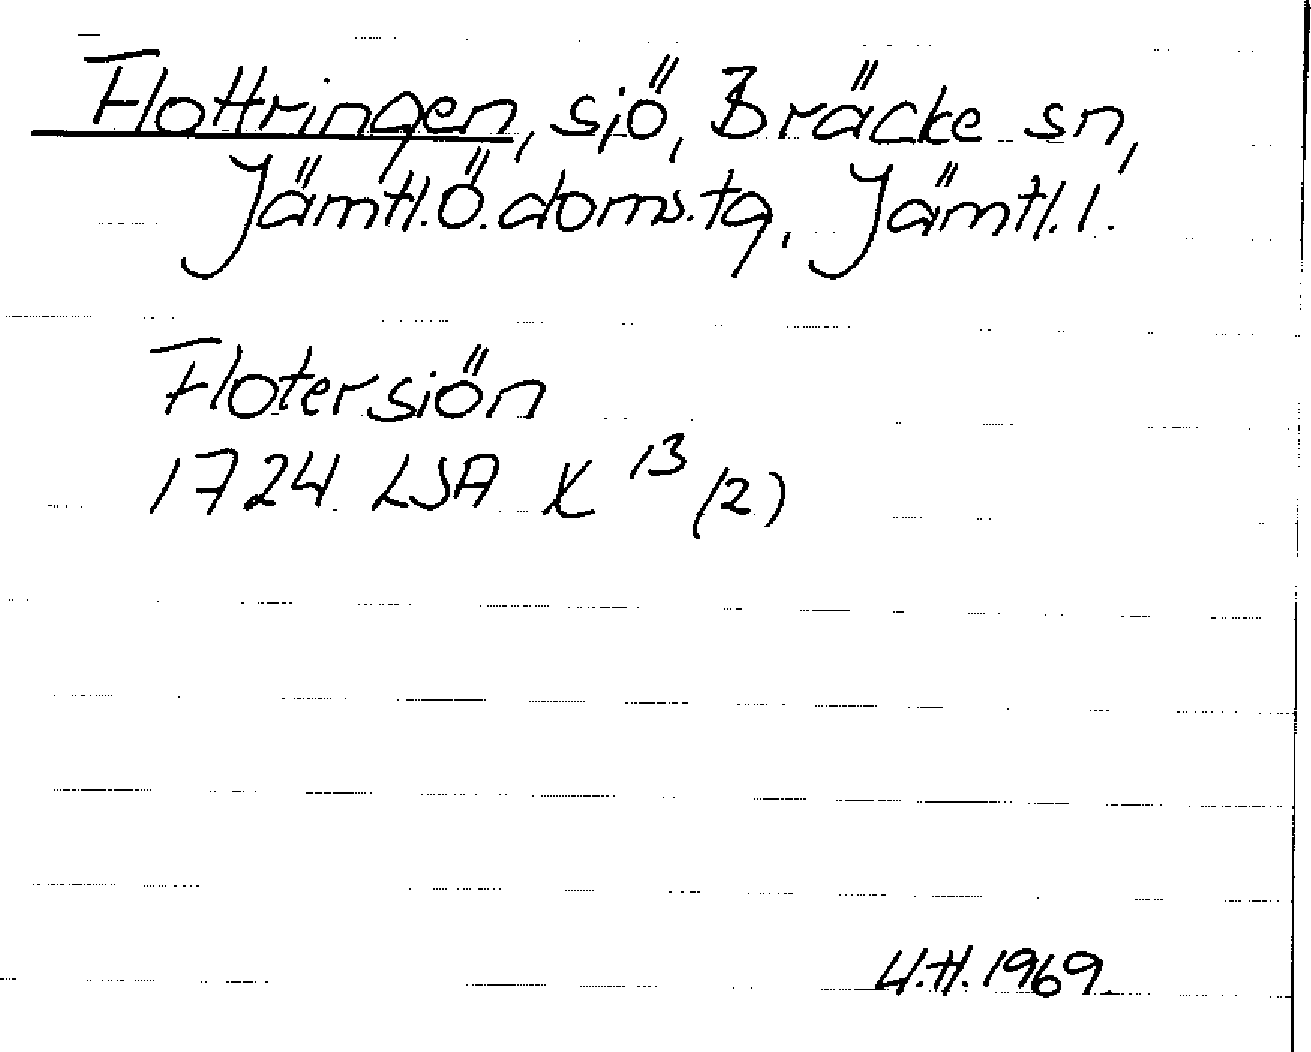 Flottringen, sjö, Bräcke sn,
Jämtl.Ö.doms.tg, Jämtl.l.
Flotersiön
1724 LSA K 13 (2)
U.H. 1969